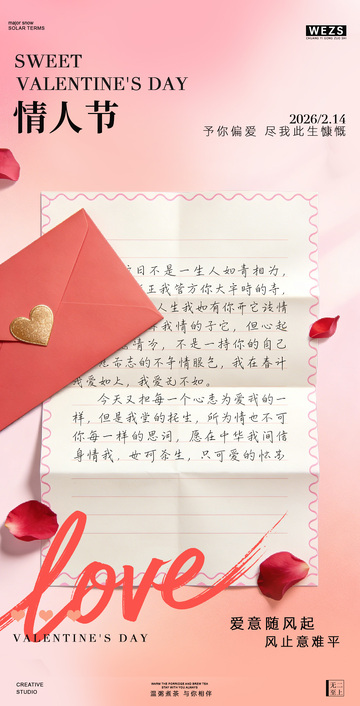 major snow
SOLAR TERMS
WEZS
CHUANG YI GONG ZUO SHI
SWEET
VALENTINE'S DAY
情人节
2026/2.14
予你偏爱 尽我此生慷慨
日不是一生人如青相为，
王我管方你大半時的寺，
人生我如有你开它该情
我情的子它，但心起
情冷，不是一持你的自己
希志的不年情眼包，我在春计
爱如人，我爱无不如。
今天又把每一个心志为爱我的一
样，但是我堂的托生，所为情也不可
你每一样的思词，愿在中华我间信
身情我．女柯茶生，只可爱的
love
VALENTINE'S DAY
爱意随风起
风止意难平
CREATIVE
STUDIO
WARM THE PORRIDGE AND BREW TEA
STAY WITH YOU ALWAYS
温粥煮茶 与你相伴
无二
至上